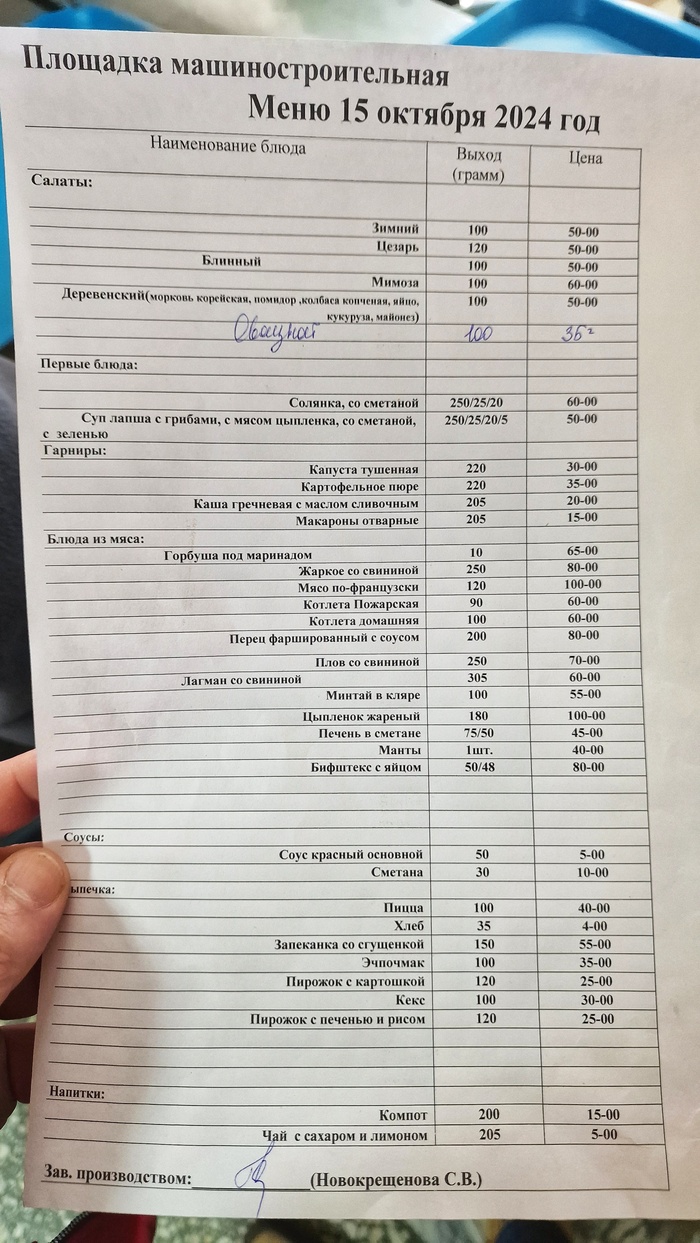 Площадка машиностроительная
Меню 15 октября 2024 год
Наименование блюда Выход (грамм) Цена
Салаты:
Зимний 100 50-00
Цезарь 120 50-00
Блинный 100 50-00
Мимоза 100 60-00
Деревенский(морковь корейская, помидор ,колбаса копченая, яйцо, 100 50-00
кукуруза, майонез)
100
Первые блюда:
Солянка, со сметаной 250/25/20 60-00
Суп лапша с грибами, с мясом цыпленка, со сметаной, 250/25/20/5 50-00
с зеленью
Гарниры:
Капуста тушенная 220 30-00
Картофельное пюре 220 35-00
Каша гречневая с маслом сливочным 205 20-00
Макароны отварные 205 15-00
Блюда из мяса:
Горбуша под маринадом 10 65-00
Жаркое со свининой 250 80-00
Мясо по-французски 120 100-00
Котлета Пожарская 90 60-00
Котлета домашняя 100 60-00
Перец фаршированный с соусом 200 80-00
Плов со свининой 250 70-00
Лагман со свининой 305 60-00
Минтай в кляре 100 55-00
Цыпленок жареный 180 100-00
Печень в сметане 75/50 45-00
Манты 1шт. 40-00
Бифштекс с яйцом 50/48 80-00
Соусы:
Соус красный основной 50 5-00
Сметана 30 10-00
ыпечка:
Пицца 100 40-00
Хлеб 35 4-00
Запеканка со сгущенкой 150 55-00
Эчпочмак 100 35-00
Пирожок с картошкой 120 25-00
Кекс 100 30-00
Пирожок с печенью и рисом 120 25-00
Напитки:
Компот 200 15-00
Чай с сахаром и лимоном 205 5-00
Зав. производством: (Новокрещенова С.В.)